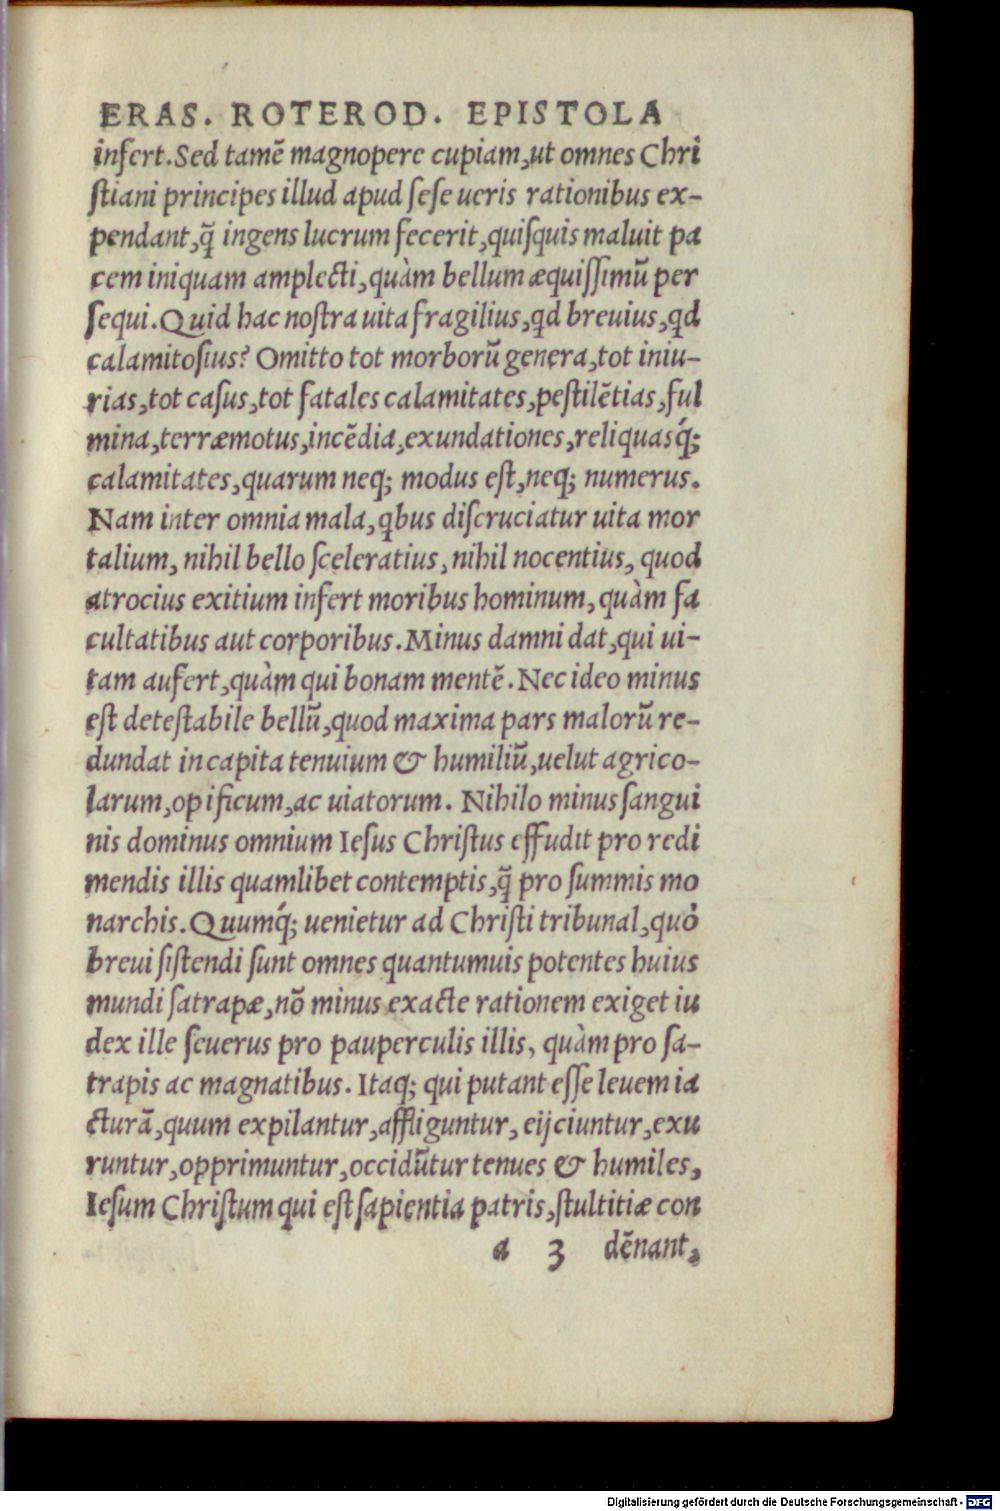 ERAS. ROTEROD. EPISTOLA
infert. Sed tamẽ magnopere cupiam, ut omnes Chri
ſtiani principes illud apud ſeſe ueris rationibus ex-
pendant, q̃ ingens lucrum fecerit, quiſquis maluit pa
cem iniquam amplecti, quàm bellum æquiſſimũ per
ſequi. Quid hac noſtra uita fragilius, qd breuius, qd
calamitoſius? Omitto tot morborũ genera, tot iniu-
rias, tot caſus, tot fatales calamitates, peſtilẽtias, ful
mina, terræmotus, incẽdia, exundationes, reliquasq́;
calamitates, quarum neq; modus eſt, neq; numerus.
Nam inter omnia mala, qbus diſcruciatur uita mor
talium, nihil bello ſceleratius, nihil nocentius, quod
atrocius exitium infert moribus hominum, quàm fa
cultatibus aut corporibus. Minus damni dat, qui ui-
tam aufert, quàm qui bonam mentẽ. Nec ideo minus
eſt deteſtabile bellũ, quod maxima pars malorũ re-
dundat in capita tenuium & humiliũ, uelut agrico-
larum, opificum, ac uiatorum. Nihilo minus ſangui
nis dominus omnium Ieſus Chriſtus effudit pro redi
mendis illis quamlibet contemptis, q̃ pro ſummis mo
narchis. Quumq́; uenietur ad Chriſti tribunal, quò
breui ſiſtendi ſunt omnes quantumuis potentes huius
mundi ſatrapæ, nõ minus exacte rationem exiget iu
dex ille ſeuerus pro pauperculis illis, quàm pro ſa-
trapis ac magnatibus. Itaq; qui putant eſſe leuem ia
cturã, quum expilantur, affliguntur, eijciuntur, exu
runtur, opprimuntur, occidũtur tenues & humiles,
Ieſum Chriſtum qui eſt ſapientia patris, ſtultitiæ con
a 3 dẽnant,
Digitalisierung gefördert durch die Deutsche Forschungsgemeinschaft - DFG